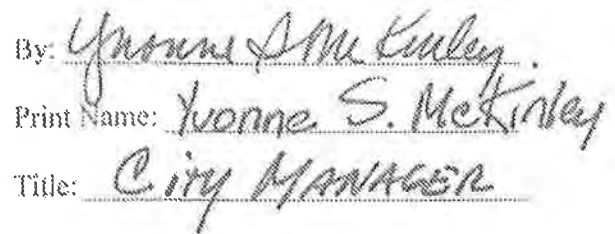 By: Yvonne S McKinley.
Print Name: Yvonne S. McKinley
Title: City MANAGER